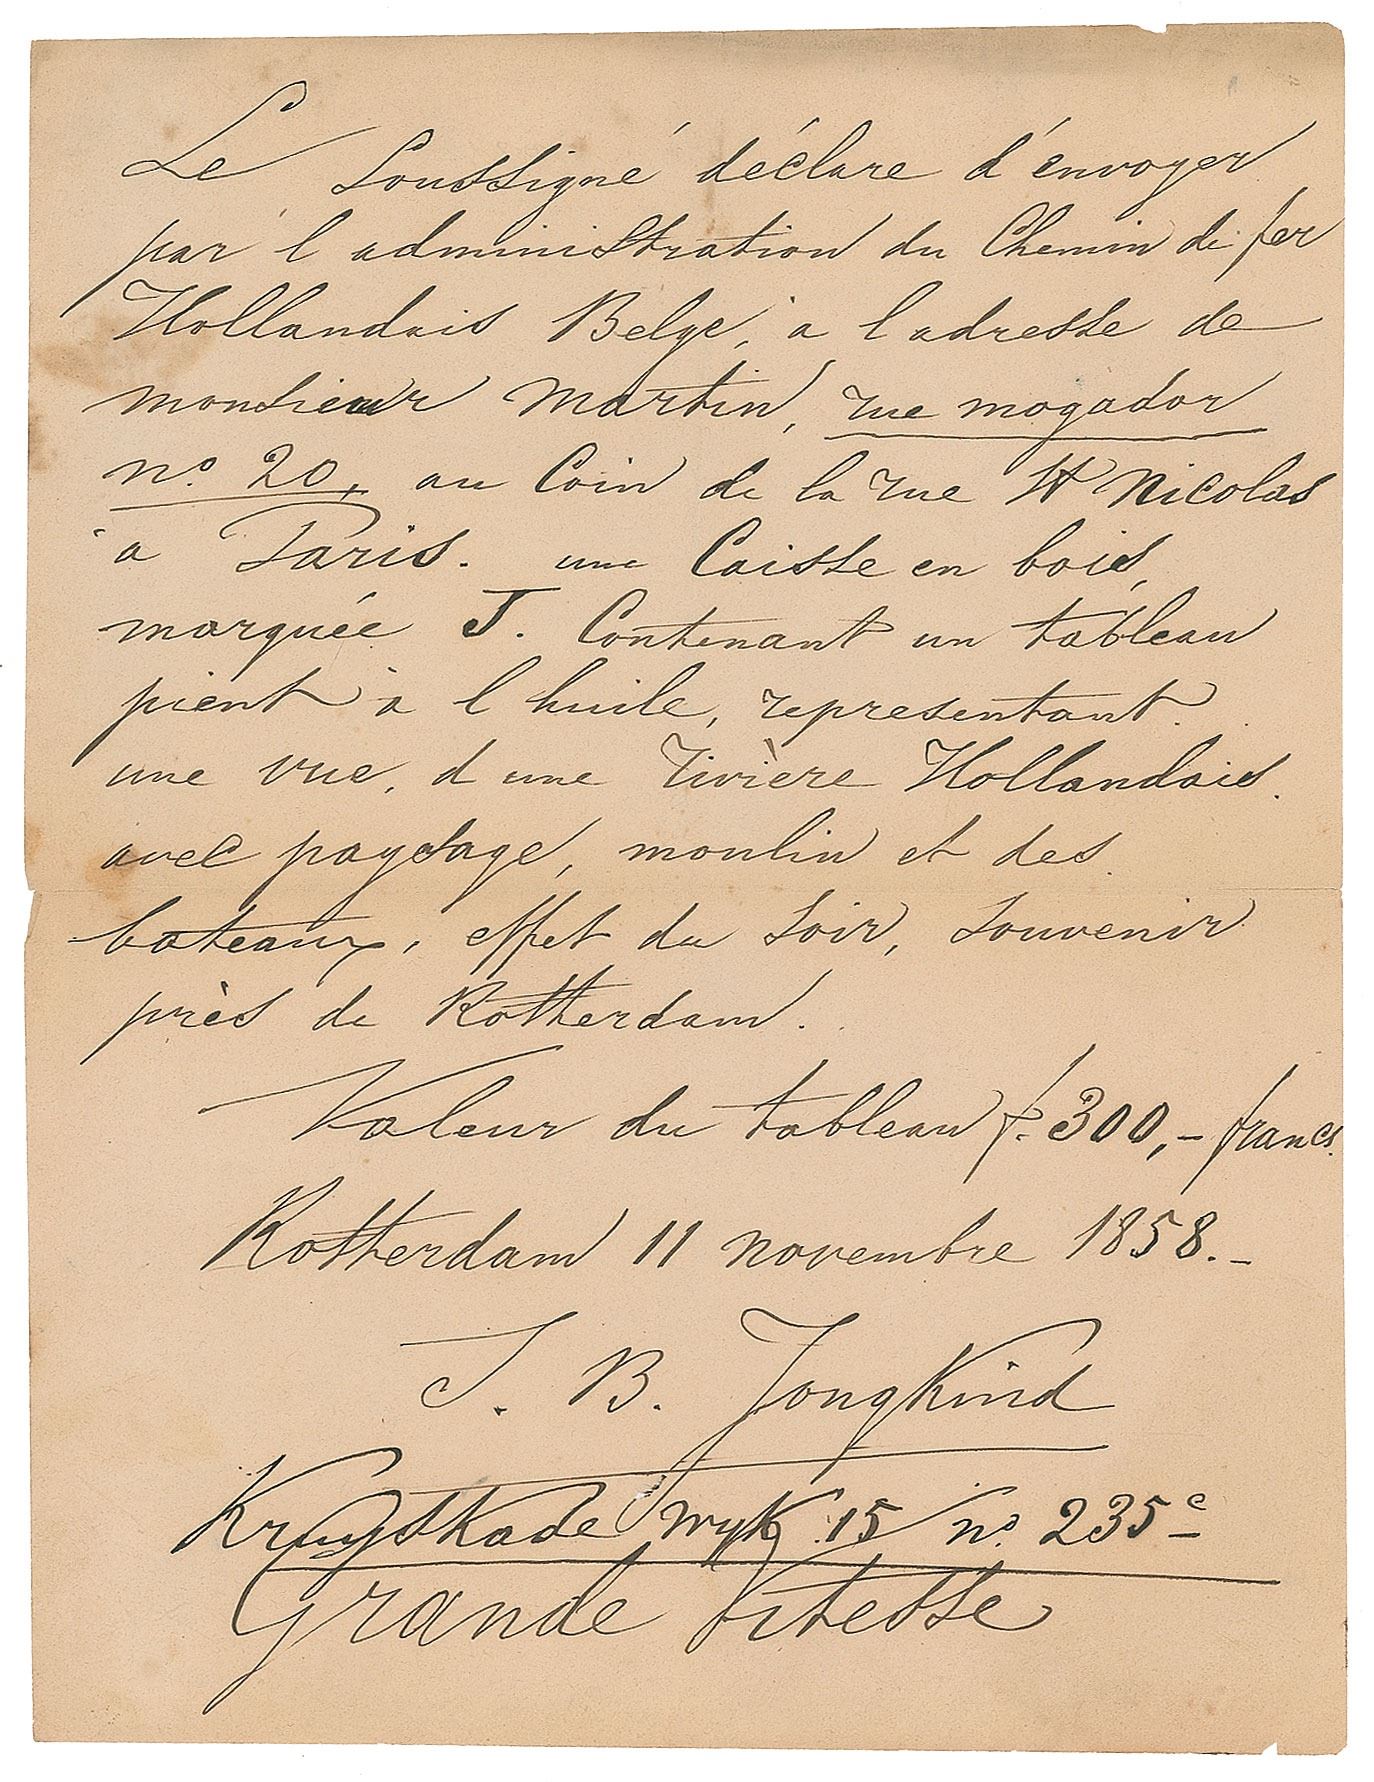 Le Soussigné déclare d'envoyer
par l administration du Chemin de fer
Hollandais Belge, a l adresse de
monsieur Martin, rue mogador
n.° 20, au Coin de la rue St Nicolas
a Paris. une Caisse en bois,
marquée J. Contenant un tableau
pient à l huile, representant
une vue, d une Rivière Hollandais.
avec paysage, moulin et des
bateaux, effet du Soir, Souvenir
près de Rotterdam.
Valeur du tableau f. 300,- francs.
Rotterdam 11 novembre 1858.-
J. B. Jongkind
Kruyskade wyk 15 n.° 235c
Grande Vitesse